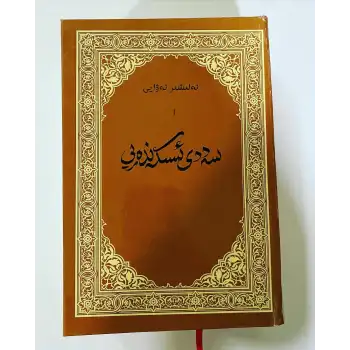 ئەلىشىر نەۋايى
1
سەددى ئىسكەندەرىي